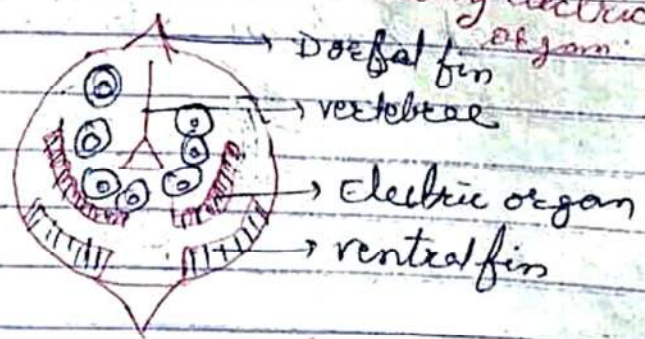 electric
organ.
Dorsal fin
vertebrae
electric organ
ventral fin